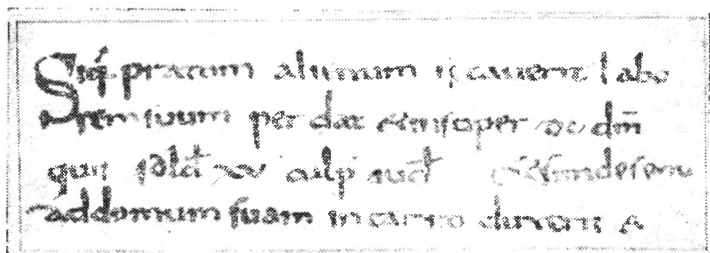 Siq̄ pratum alinum secauerit labo
rem suum per dat etinsoper dc dn̄
qui solđ xv culp iuđ etsindefenu
ad domum suam in carro duxerit